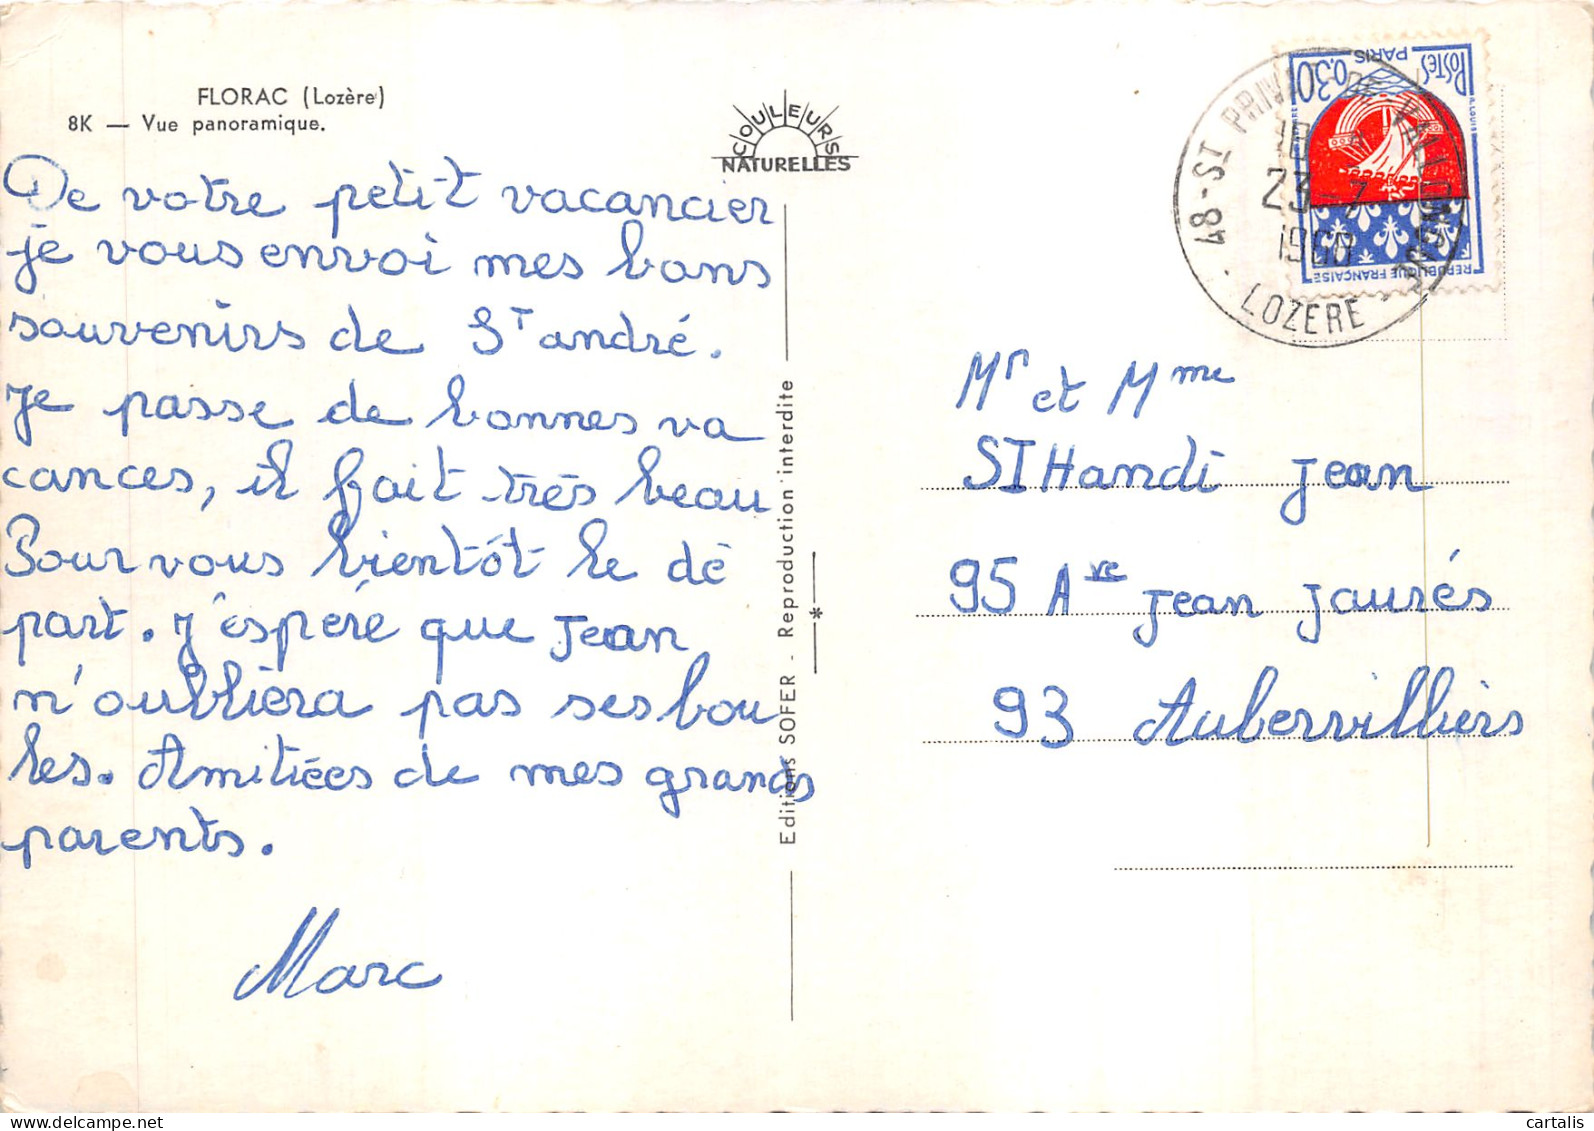 FLORAC (Lozère)
8K — Vue panoramique.
De votre petit vacancier
je vous envoi mes bons
souvenirs de St andré.
Je passe de bonnes va
cances, il fait très beau
Pour vous bientôt le dé
part. J'éspére que Jean
n'oublièra pas ses bou
les. Amitiées de mes grands
parents.
Marc
COULEURS
NATURELLES
Editions SOFER - Reproduction interdite
*
48 - ST PRIVAT DE VALLONGUE
18 H
23 - 7
1968
LOZERE
POSTES
0,30
PARIS
REPUBLIQUE FRANÇAISE
Mr et Mme
STHandi Jean
95 Ave Jean Jaurés
93 Aubervilliers
cartalis